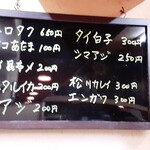 トロタク 650円
コあたま 100円
昆布〆 200円
タルイカ 200円
アジ 200円
タイ白子 300円
シマアジ 250円
松川カレイ 300円
エンガワ 300円